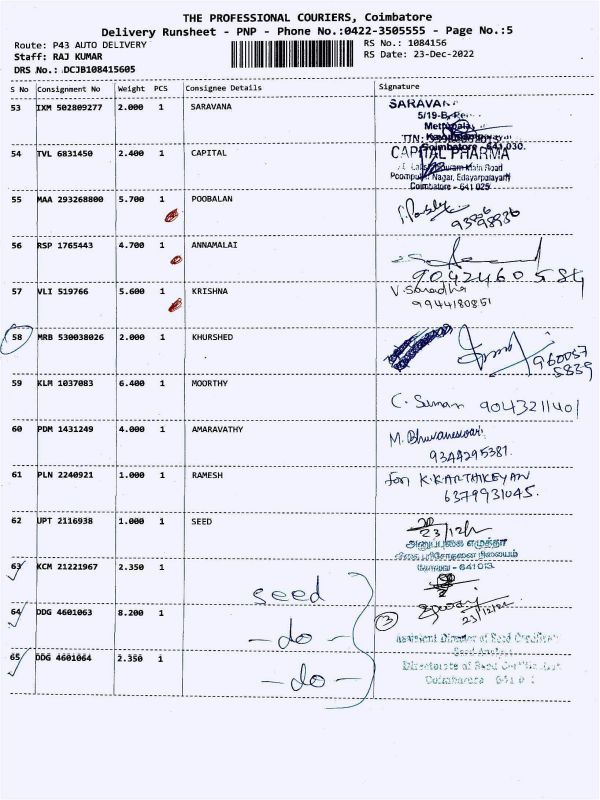 THE PROFESSIONAL COURIERS, Coimbatore
Delivery Runsheet - PNP - Phone No.:0422-3505555 - Page No.:5
Route: P43 AUTO DELIVERY
RS No.: 1084156
Staff: RAJ KUMAR
RS Date: 23-Dec-2022
DRS No.: DCJB108415605
S No Consignment No Weight PCS Consignee Details Signature
53 IXM 502809277 2.000 1 SARAVANA
5/19-B,
Coimbatore - 641 030.
54 TVL 6831450 2.400 1 CAPITAL
CAPITAL PHARMA
Main Road
Nagar, Edayarpalayam
Coimbatore - 641 025
55 MAA 293268800 5.700 1 POOBALAN
98936
56 RSP 1765443 4.700 1 ANNAMALAI
57 VLI 519766 5.600 1 KRISHNA
V. Saradha
9944180851
58 MRB 530038026 2.000 1 KHURSHED
5839
59 KLM 1037083 6.400 1 MOORTHY
C. Suman 9043211401
60 PDM 1431249 4.000 1 AMARAVATHY
M. Bhuvaneswari
9344295381.
61 PLN 2240921 1.000 1 RAMESH
for K.KARTHIKEYAN
6379931045.
62 UPT 2116938 1.000 1 SEED
23/12/
63 KCM 21221967 2.350 1 seed
கோவை - 641013
64 DDG 4601063 8.200 1 - do -
3
23/12/22
65 DDG 4601064 2.350 1 - do -
Assistant Director of Seed
Directorate of Seed
Coimbatore